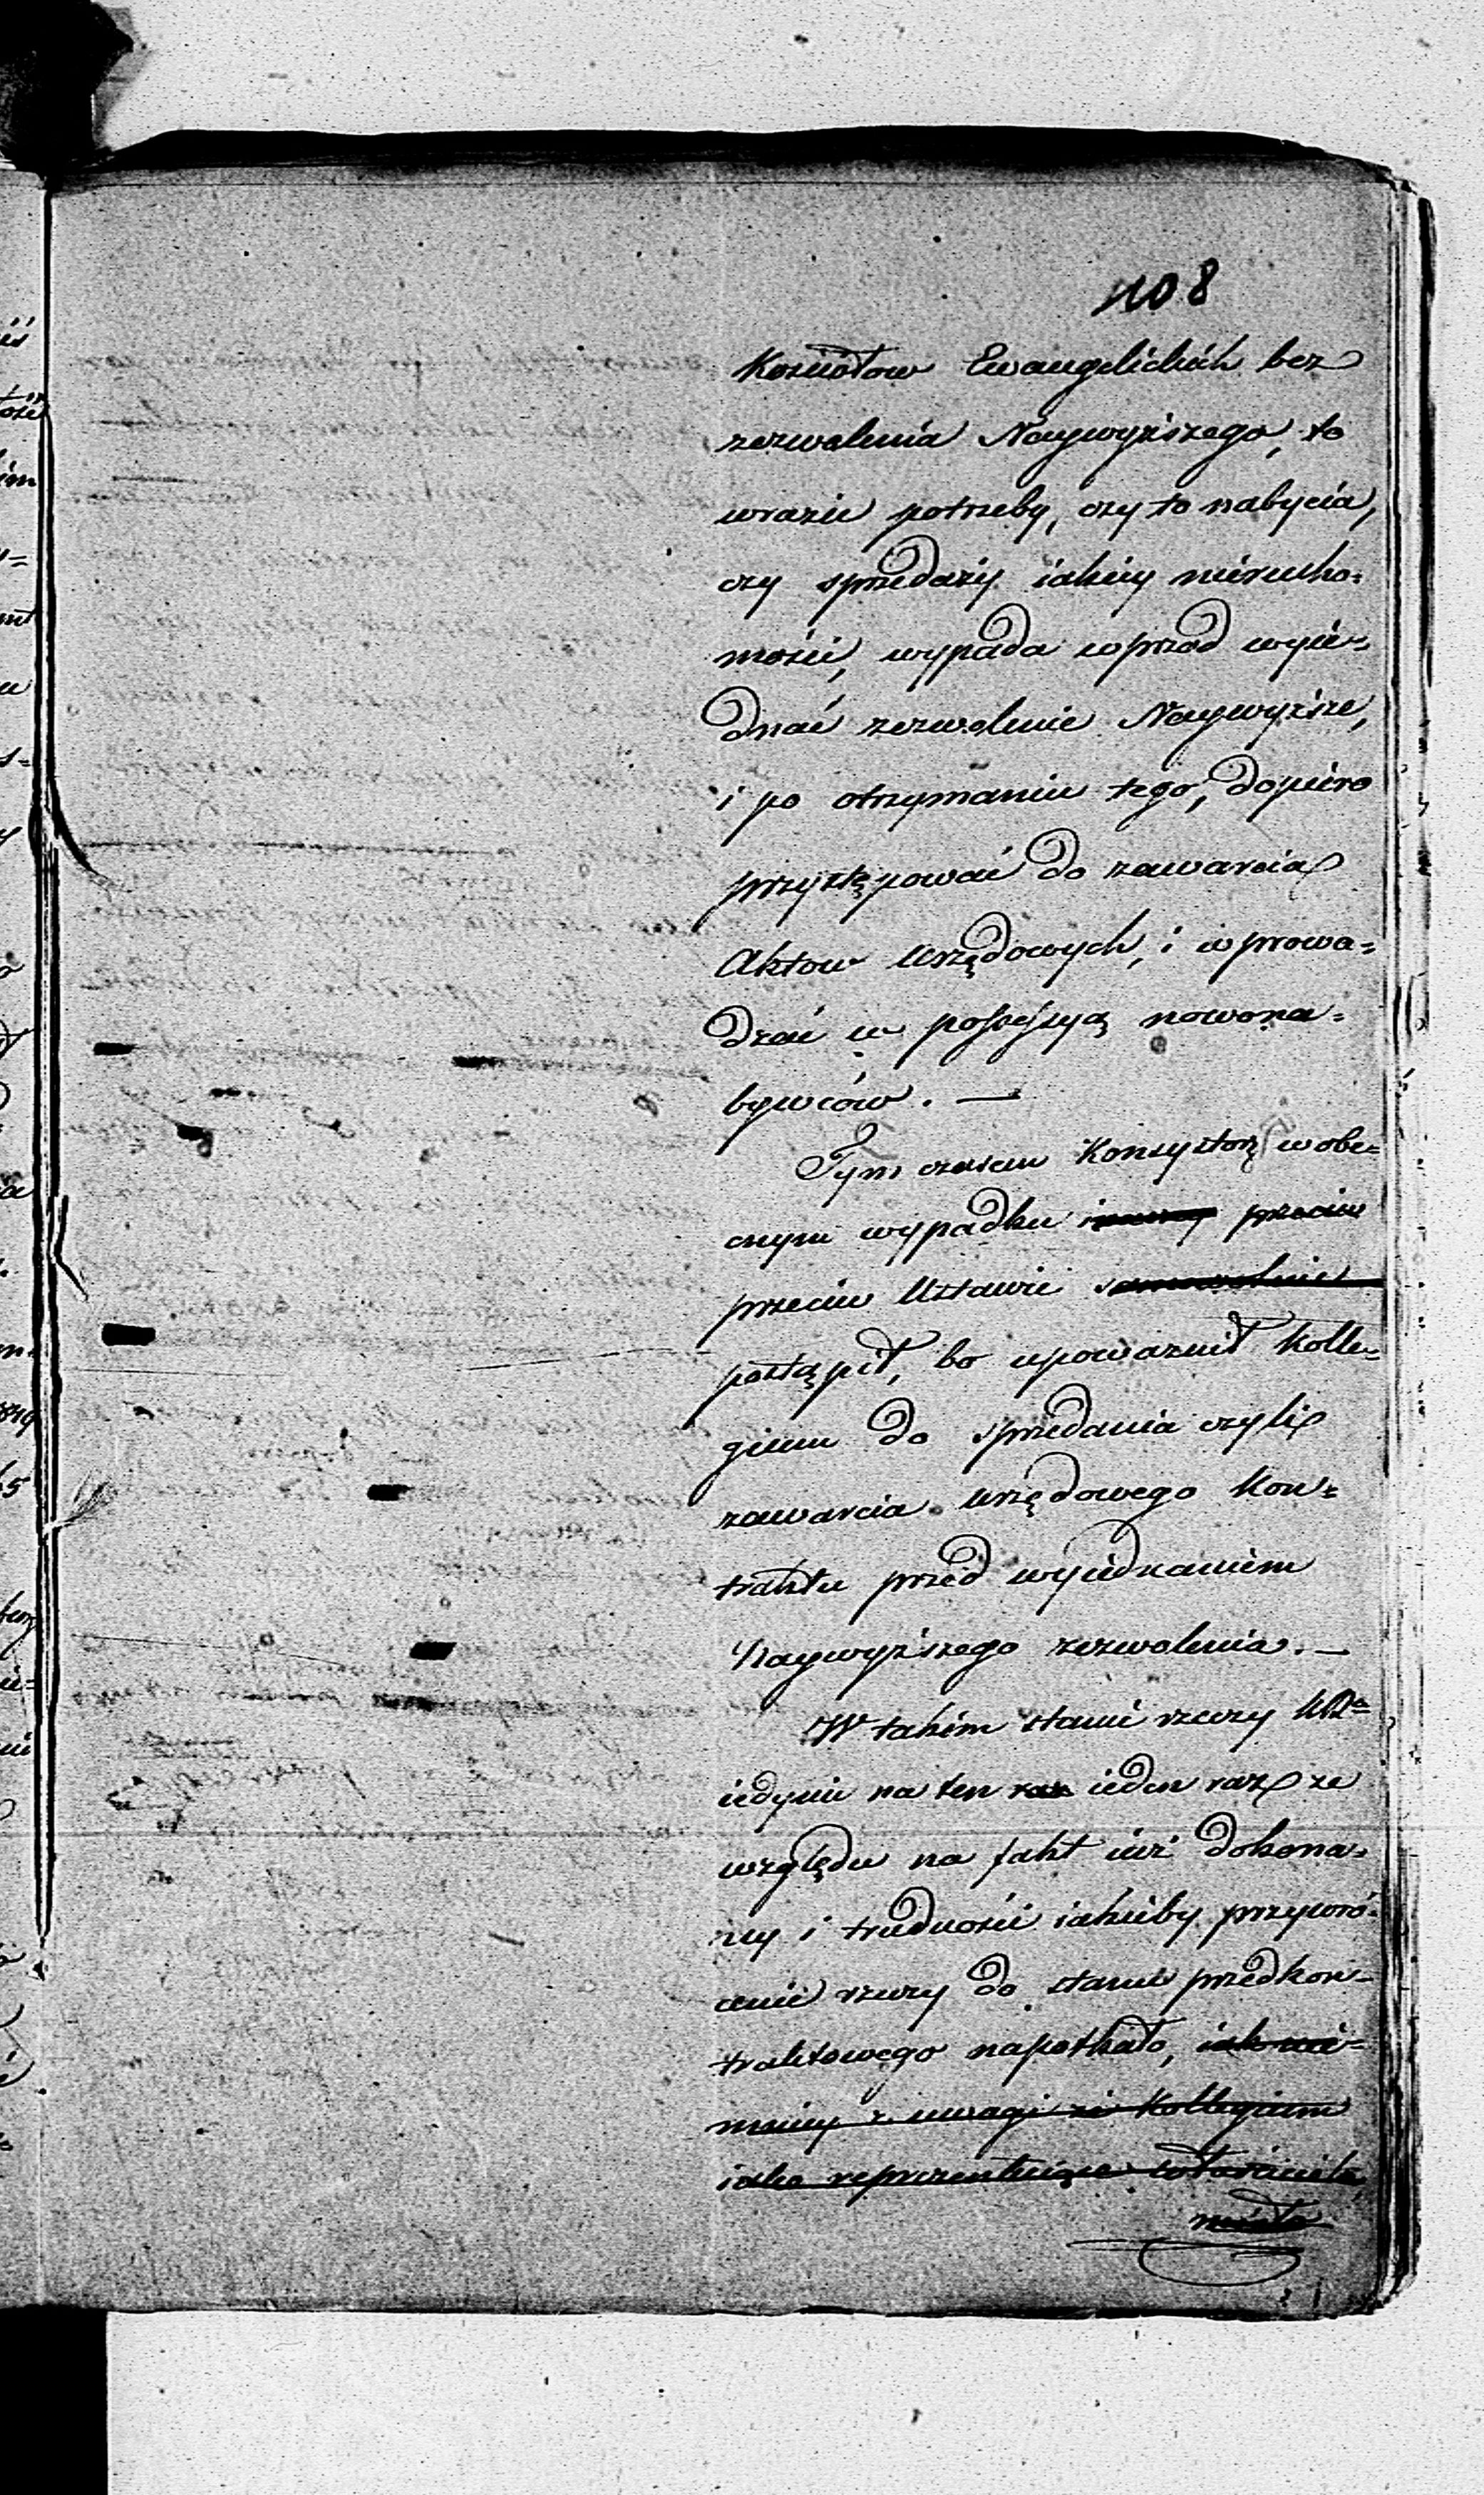 108
Kosciołow Ewangelickich bez
zezwolenia Naywyższego, to
wrazie potrzeby, czy to nabycia,
czy sprzedaży iakiey nierucho=
mości, wypada wprzod wyie=
dnać zezwolenie Naywyższe,
i po otrzymaniu tego, dopiero
przystępować do zawarcia
Aktow Urzędowych, i wprowa=
dzać w possessyą nowona=
bywców. —
Tym czasem Konsystorz w obe=
cnym wypadku przeciw
przeciw Ustawie samowolnie
postąpił, bo upoważnił Kolle=
gium do sprzedania czyli
zawarcia Urzędowego Kon=
traktu przed wyiednaniem
Naywyższego zezwolenia. —
W takim stanie rzeczy
iedynie na ten raz ieden raz ze
względu na fakt iuż dokona=
ny i trudności iakieby przywró=
cenie rzeczy do stanu przedkon=
traktowego napotkało, iako nie=
mniey z uwagi że Kollegium
iako reprezentuiące właściciela,
miało